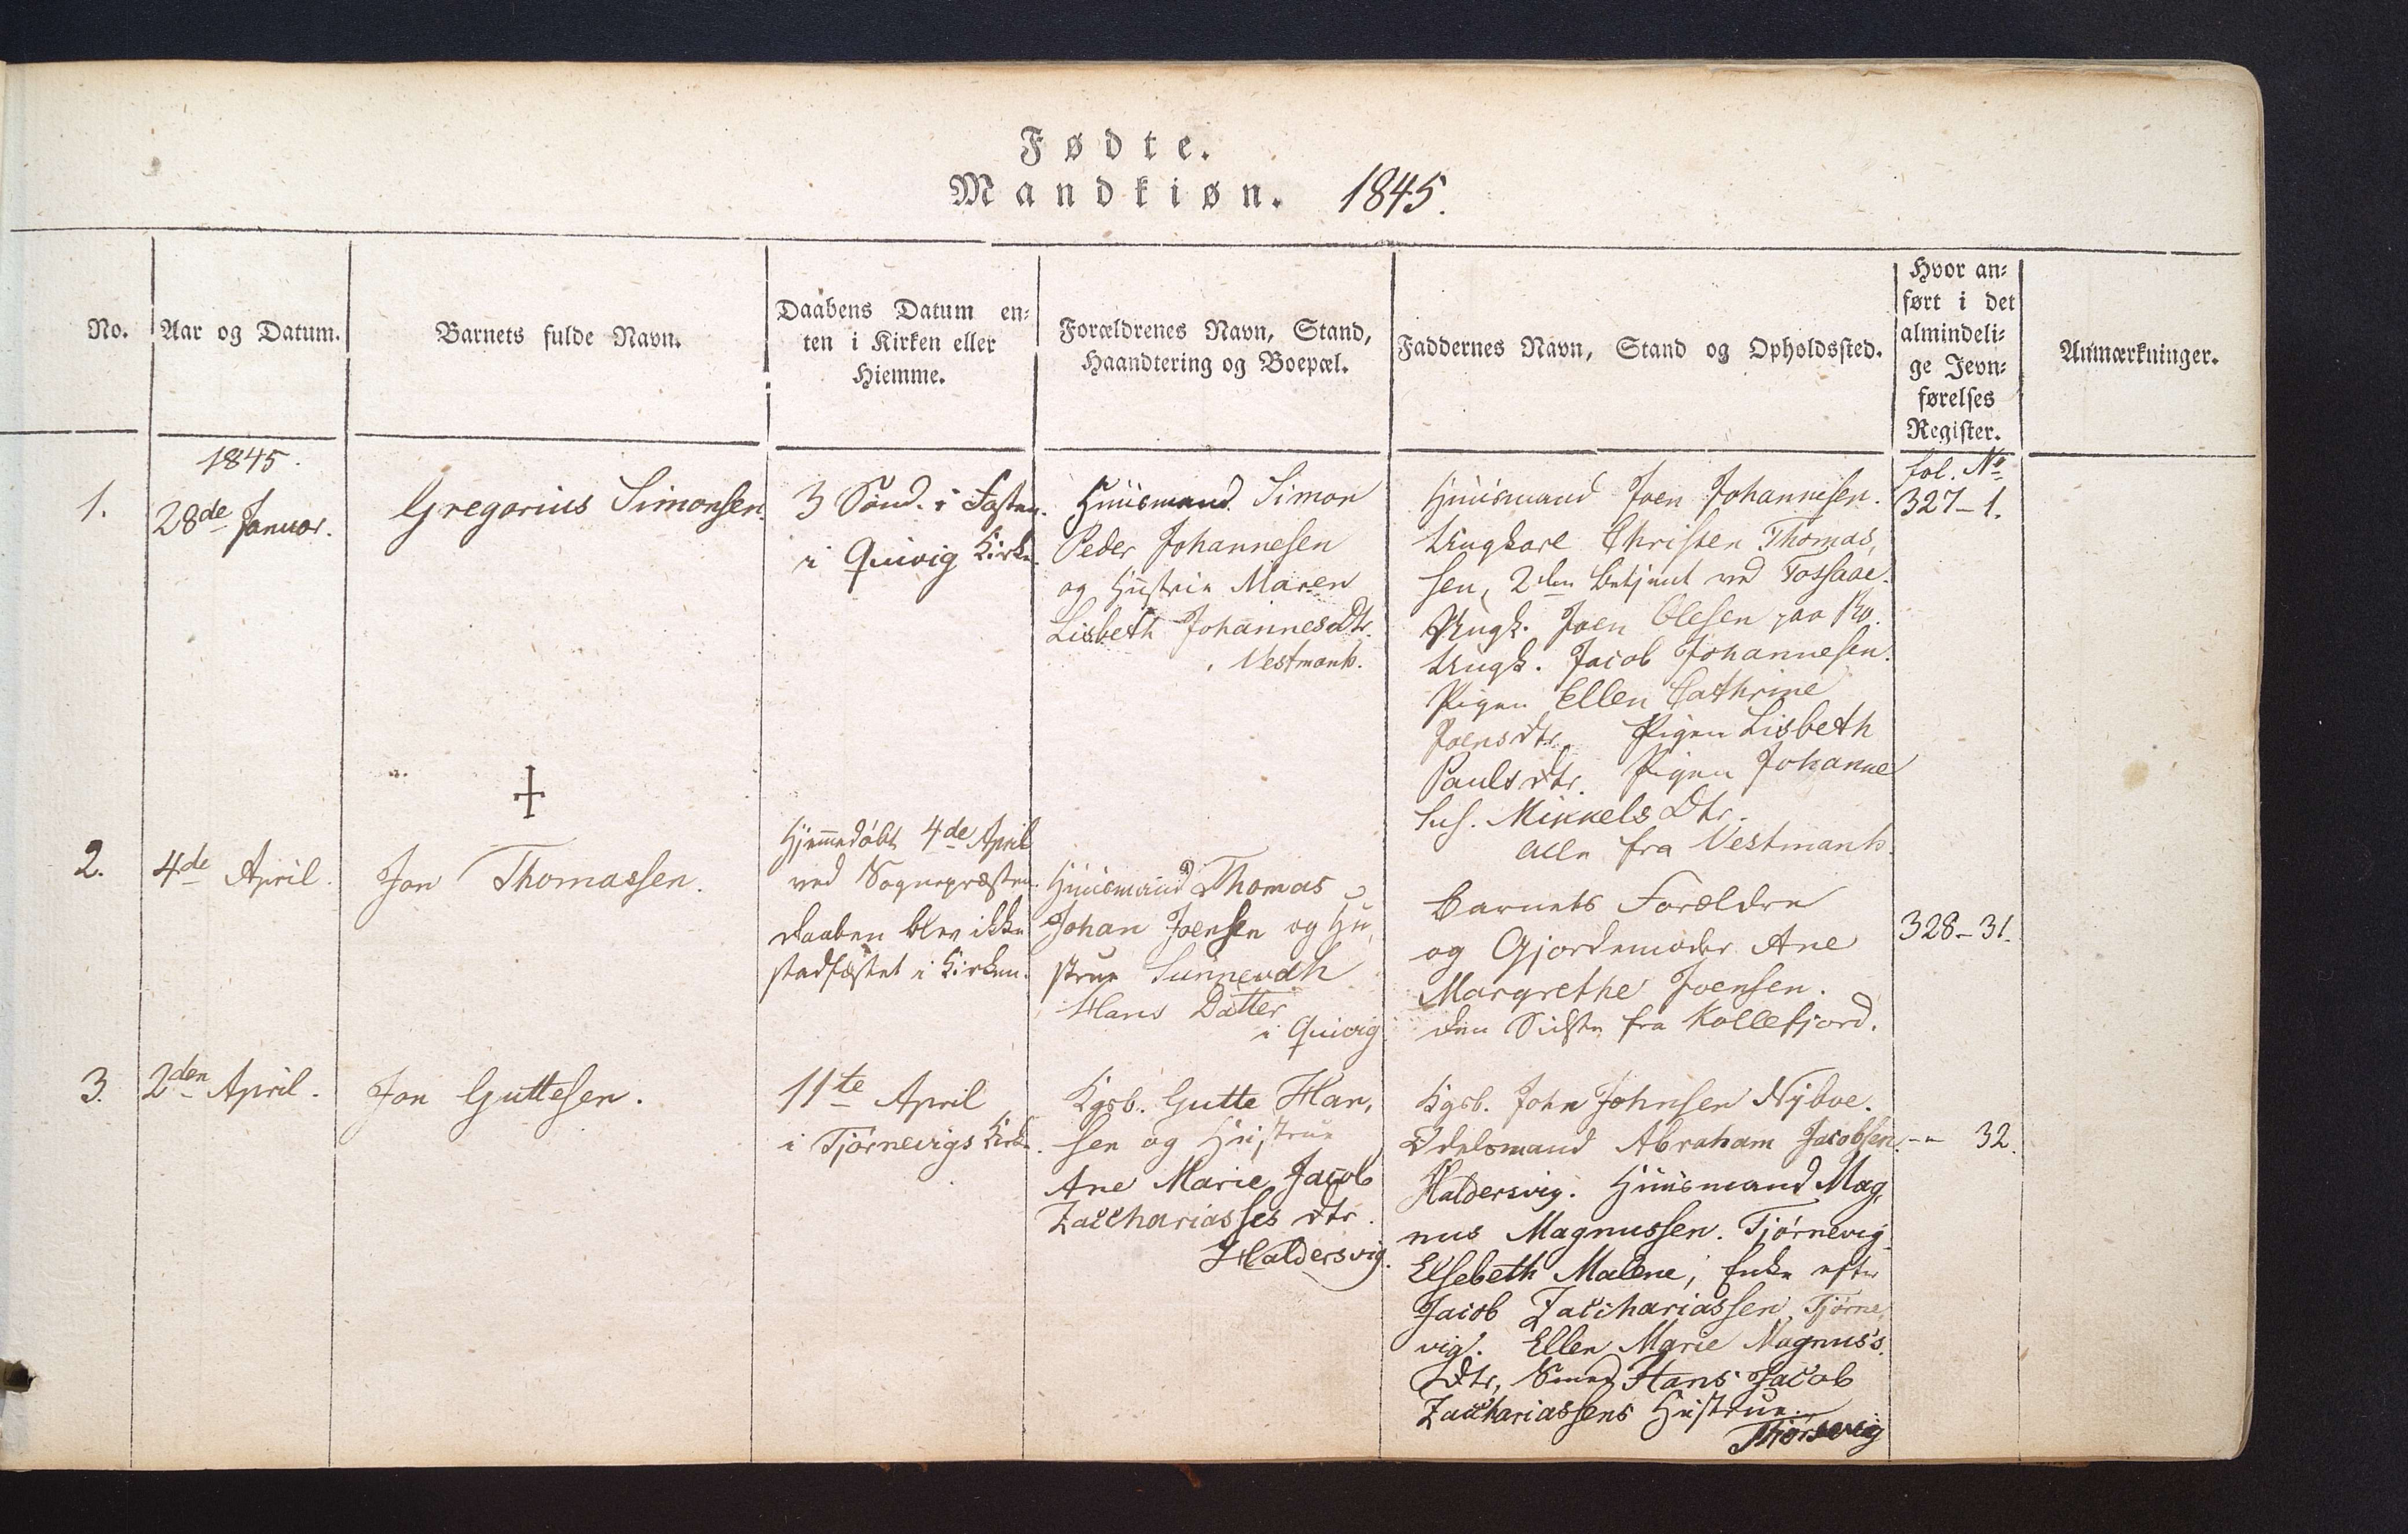 Fødte.
Mandkiøn. 1845.
No.
Aar og Datum.
Barnets fulde Navn.
Daabens Datum en-
ten i Kirken eller
Hiemme.
Forældrenes Navn, Stand,
Haandtering og Boepæl.
Faddernes Navn, Stand og Opholdssted.
Hvor an-
ført i det
almindeli-
ge Jevn-
førelses
Register.
Anmærkninger.
1.
1845.
28de Januar.
Gregorius Simonsen.
3 Sønd. i Fasten.
i Quivig Kirke.
Huusmand Simon
Peder Johannesen
og Hustrue Maren
Lisbeth Johannesdtr.
Vestmanh.
Huusmand Joen Johannesen.
Ungkarl Christen Thomas,
sen, 2den Betjent ved
Ungk. Joen Olesen paa
Ungk. Jacob Johannesen.
Pigen Ellen Cathrine
Joensdtr. Pigen Lisbeth
Paulsdtr. Pigen Johanne
Sus. Mikkels Dtr.
Alle fra Vestmanh.
fol. No
327-1.
2.
4de April.
†
Jon Thomassen.
Hjemmedøbt 4de April
ved Sognepræsten.
Daaben blev ikke
stadfæstet i Kirken.
Huusmand Thomas
Johan Joensen og Hu,
strue Sunnevdh
Hans Datter
i Quivig
Barnets Forældre
og Gjordemoder Ane
Margrethe Joensen.
den Sidste fra Kollefjord.
328-31.
3.
2den April.
Jon Guttesen.
11te April
i Tjørnevigs Kirke.
Kgsb. Gutte Han,
sen og Hustrue
Ane Marie Jacob
Zacchariasses dtr.
Haldersvig.
Kgsb. John Johnsen Nyboe.
Odelsmand Abraham Jacobsen.
Haldersvig. Huusmand Mag,
nus Magnussen. Tjørnevig
Elsebeth Malene, Enke efter
Jacob Zacchariassen, Tjørne,
vig. Ellen Marie Magnus's.
Dtr, Smed Hans Jacob
Zacchariassens Hustrue.
-" 32.